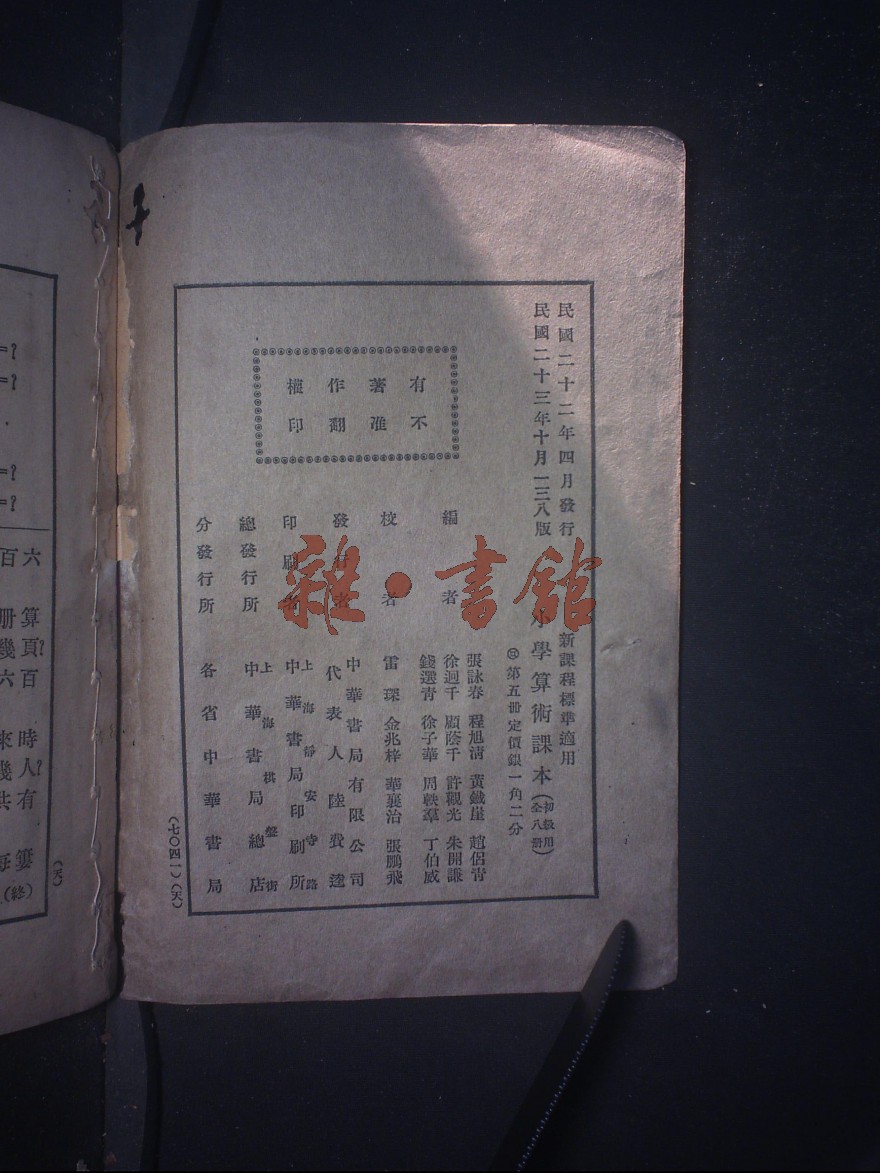 民國二十二年四月發行
民國二十三年十月一三八版
新課程標準適用
小學算術課本(初級用全八册)
第五册定價銀一角二分
有著作權
不准翻印
編者
張詠春 程旭清 黃鐵崖 趙侶青
徐迥千 顧蔭千 許觀光 朱開謙
錢選青 徐子華 周軼羣 丁伯威
校者
雷琛 金兆梓 華襄治 張鵬飛
發行者
中華書局有限公司
代表人陸費逵
印刷者
上海靜安寺路
中華書局印刷所
總發行所
上海棋盤街
中華書局總店
分發行所
各省中華書局
(七〇四一)(天)
雜·書館
=?
=?
=?
=?
六百
算册
頁?幾
百六
時來
人?幾
有共
簍每
(終)
(天)